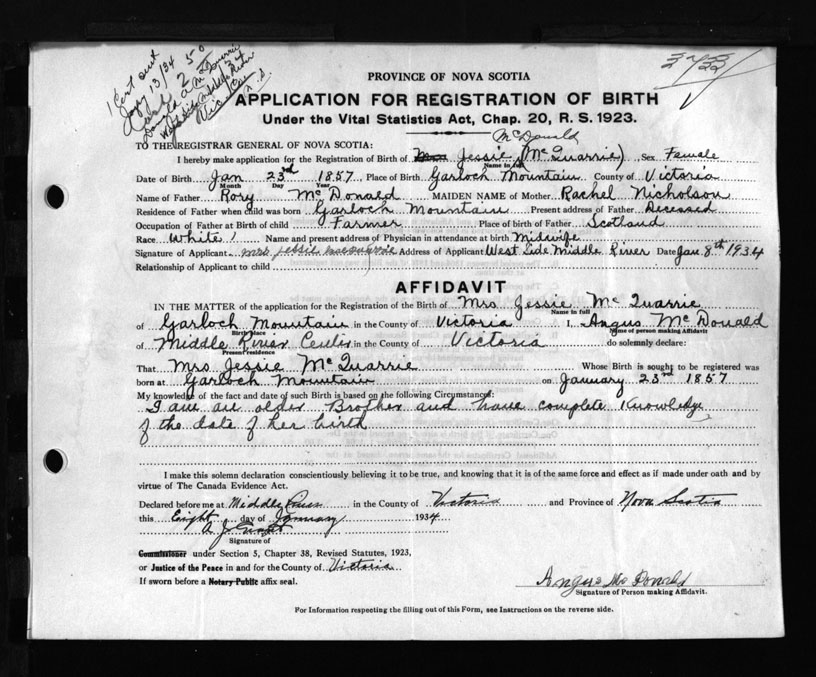 1 Cert sent
Jany 13/34
PROVINCE OF NOVA SCOTIA
APPLICATION FOR REGISTRATION OF BIRTH
Under the Vital Statistics Act, Chap. 20, R. S. 1923.
McDonald
TO THE REGISTRAR GENERAL OF NOVA SCOTIA:
I hereby make application for the Registration of Birth of Jessie (McQuarrie) Sex Female
Name in full
Date of Birth Jan 23rd 1857 Place of Birth Garloch Mountain County of Victoria
Month Day Year
Name of Father Rory McDonald MAIDEN NAME of Mother Rachel Nicholson
Residence of Father when child was born Garloch Mountain Present address of Father Deceased
Occupation of Father at Birth of child Farmer Place of birth of Father Scotland
Race White Name and present address of Physician in attendance at birth Midwife
Signature of Applicant Mrs Jessie McQuarrie Address of Applicant West Side Middle River Date Jan 8th 1934
Relationship of Applicant to child
AFFIDAVIT
IN THE MATTER of the application for the Registration of the Birth of Mrs Jessie McQuarrie
Name in full
of Garloch Mountain in the County of Victoria I, Angus McDonald
Birth place Name of person making Affidavit
of Middle River Center in the County of Victoria do solemnly declare:
Present residence
That Mrs Jessie McQuarrie Whose Birth is sought to be registered was
born at Garloch Mountain on January 23rd 1857
My knowledge of the fact and date of such Birth is based on the following Circumstances:
I am an older Brother and have complete Knowledge
of the date of her birth
I make this solemn declaration conscientiously believing it to be true, and knowing that it is of the same force and effect as if made under oath and by
virtue of The Canada Evidence Act.
Declared before me at Middle River in the County of Victoria and Province of Nova Scotia
this Eight day of January 1934
A J
Signature of
Commissioner under Section 5, Chapter 38, Revised Statutes, 1923,
or Justice of the Peace in and for the County of Victoria
If sworn before a Notary Public affix seal.
Angus McDonald
Signature of Person making Affidavit.
For Information respecting the filling out of this Form, see Instructions on the reverse side.